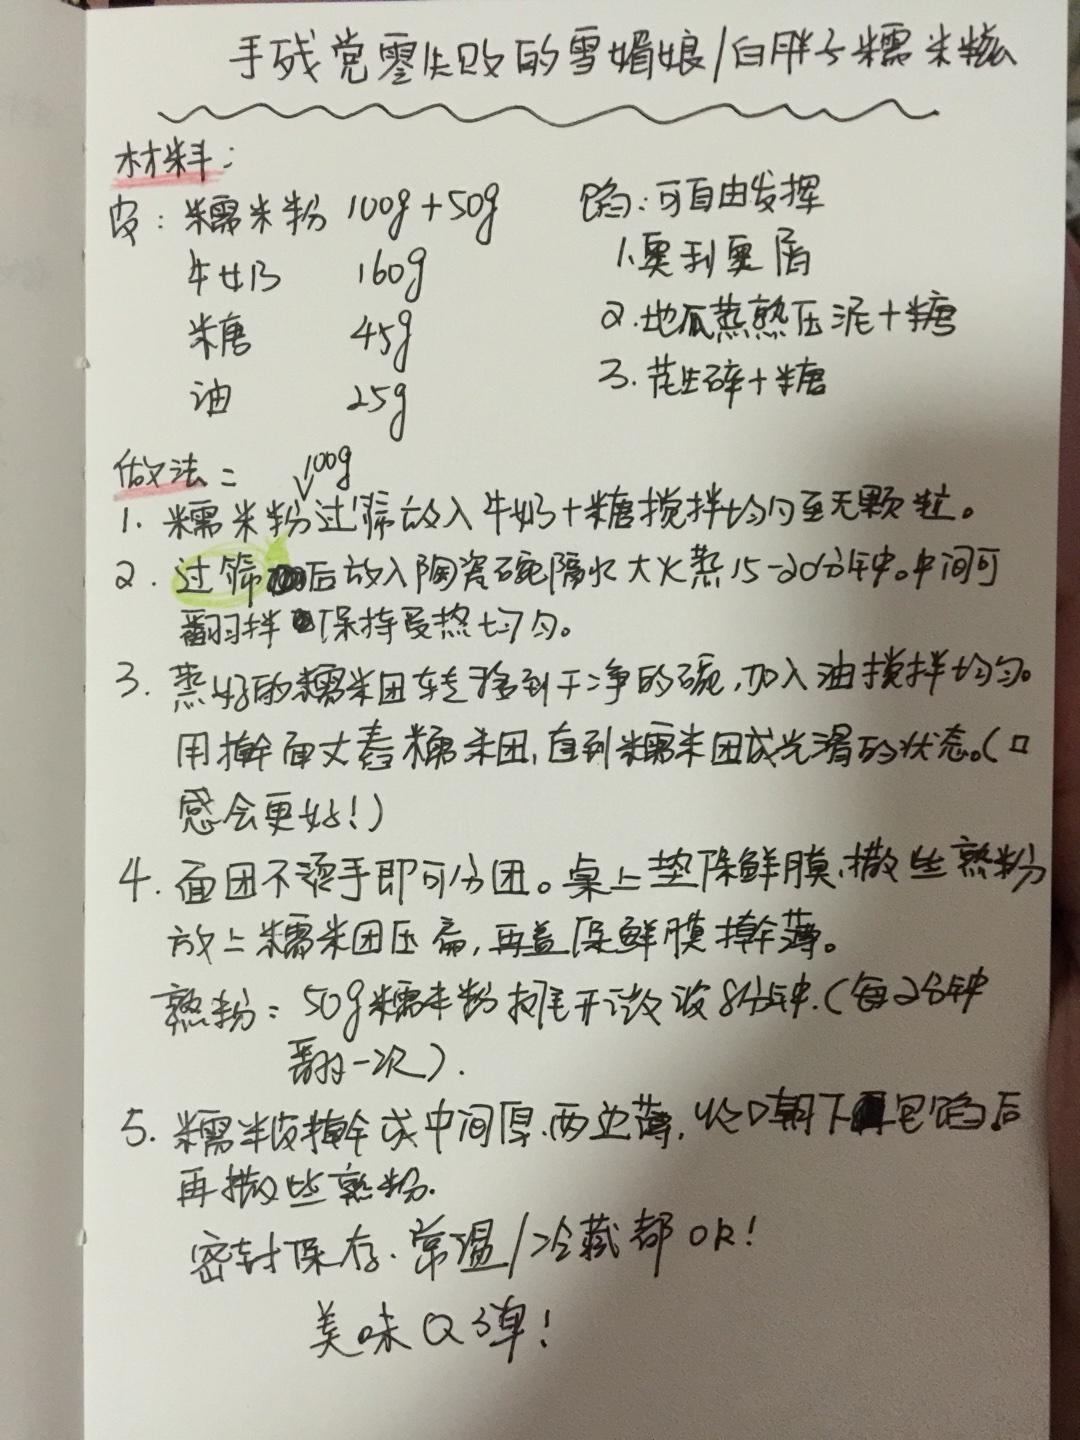 手残党零失败的雪媚娘/白胖子糯米糍
材料:
皮:糯米粉 100g+50g
牛奶 160g
糖 45g
油 25g
馅:可自由发挥
1.奥利奥屑
2.地瓜蒸熟压泥+糖
3.花生碎+糖
做法:
100g
1.糯米粉过筛放入牛奶+糖搅拌均匀至无颗粒。
2.过筛后放入陶瓷碗隔水大火蒸15-20分钟。中间可
翻拌保持受热均匀。
3.蒸好的糯米团转移到干净的碗,加入油搅拌均匀。
用擀面丈舂糯米团,直到糯米团成光滑的状态。(口
感会更好!)
4.面团不烫手即可分团。桌上垫保鲜膜,撒些熟粉
放上糯米团压扁,再盖保鲜膜擀薄。
熟粉:50g糯米粉摊开微波8分钟.(每2分钟
翻一次).
5.糯米皮擀成中间厚.两边薄,收口朝下包馅后
再撒些熟粉.
密封保存.常温/冷藏都OK!
美味Q弹!